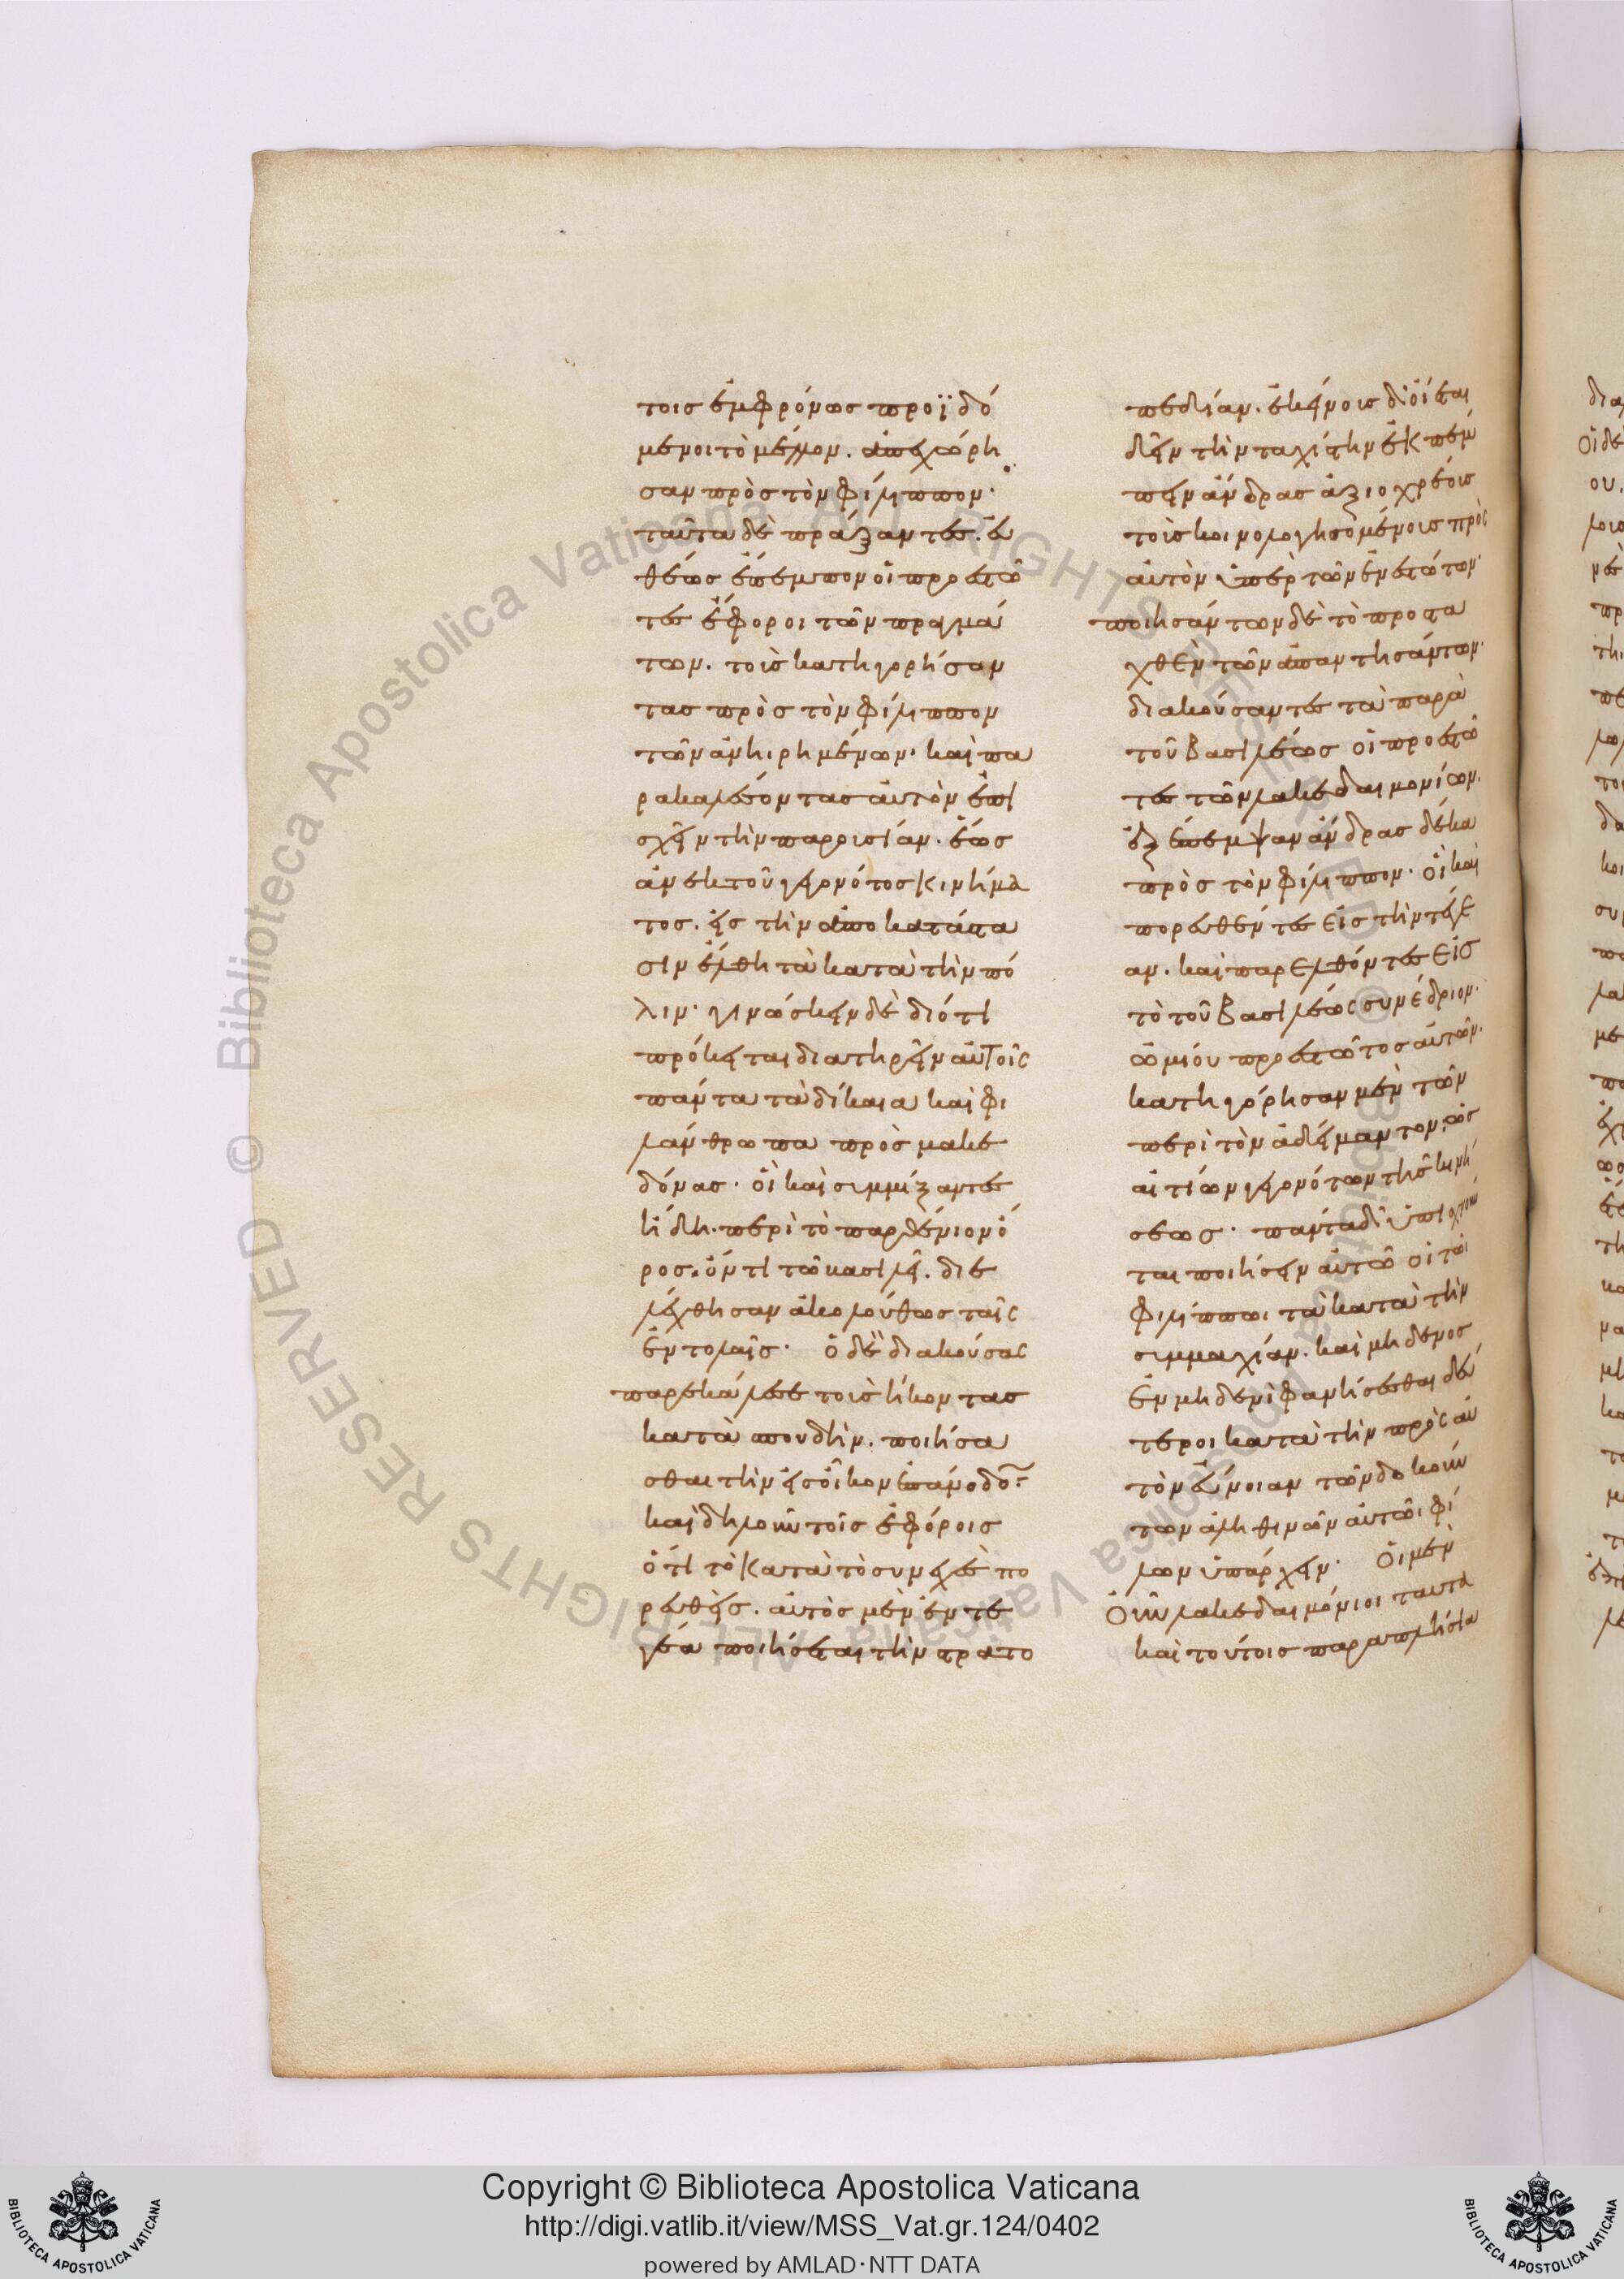 τοισ ἐμφρόνωσ προϊδό
μενοι τὸ μέλλον. ἀπεχώρη
σαν πρὸσ τὸν φίλιππον·
ταῦτα δὲ πράξαντεσ. εὐ
θέωσ ἔπεμπον οἱ προεστῶ
τεσ ἔφοροι τῶν πραγμά
των. τοὺσ κατηγορήσαν
τασ πρὸσ τὸν φίλιππον
τῶν ἀνηιρημένων· καὶ πα
ρακαλέσοντασ αὐτὸν ἐπι
σχεῖν τὴν παρουσίαν. ἕωσ
ἂν ἐκ τοῦ γεγονότοσ κινήμα
τοσ. εἰσ τὴν ἀποκατάστα
σιν ἔλθη τὰ κατὰ τὴν πό
λιν· γινώσκειν δὲ διότι
πρόκειται διατηρεῖν αὐτοῖς
πάντα τὰ δίκαια καὶ φι
λάνθρωπα πρὸσ μακε
δόνασ· οἳ καὶ συμμίξαντεσ
ἤδη. περὶ τὸ παρθένιον ὄ
ροσ. ὄντι τῶ βασιλεῖ. διε
λέχθησαν ἀκολούθωσ ταῖς
ἐντολαῖσ· ὁ δὲ διακούσας
παρεκάλεσε τοὺσ ἥκοντασ
κατὰ σπουδὴν. ποιήσα
σθαι τὴν εἰσ οἶκον ἐπάνοδον:
καὶ δηλοῦν τοῖσ ἐφόροισ
ὅτι τὸ κατὰ τὸ συνεχὲσ πο
ρευθεὶσ. αὐτὸσ μὲν ἐν τε
γέα ποιήσεται τὴν στρατο
πεδίαν. ἐκείνοισ δ' οἴεται
δεῖν τὴν ταχίστην ἐκπέμ
πειν ἄνδρασ ἀξιοχρέουσ
τοὺσ κοινολογησομένουσ πρὸς
αὐτὸν ὑπὲρ τῶν ἐνεστώτων·
ποιησάντων δὲ τὸ προστα
χθὲν τῶν ἀπαντησάντων·
διακούσαντεσ τὰ παρὰ
τοῦ βασιλέωσ οἱ προεστῶ
τεσ τῶν λακεδαιμονίων.
ἐξέπεμψαν ἄνδρασ δέκα
πρὸσ τὸν φίλιππον· οἳ καὶ
πορευθέντεσ εἰσ τὴν τέγε
αν. καὶ παρελθόντεσ εἰσ
τὸ τοῦ βασιλέως συνέδριον·
ὠμιόυ προεστῶτοσ αὐτῶν·
κατηγόρησαν μὲν τῶν
περὶ τὸν ἀδείμαντον, ὡσ
αἰτίων γεγονότων τῆσ κινή
σεωσ· πάντα δ' ὑπισχνοῦν
ται ποιήσειν αὐτῶ οἱ τῶι
φιλίππωι τὰ κατὰ τὴν
συμμαχίαν. καὶ μηδενοσ
ἐν μηδενὶ φανήσεσθαι δεύ
τεροι κατὰ τὴν πρὸς αὐ
τὸν εὔνοιαν τῶν δοκούν
των ἀληθινῶν αὐτῶι φί
λων ὑπάρχειν· Οἱ μὲν
οὖν λακεδαιμόνιοι ταῦτα
καὶ τούτοισ παραπλήσια
Copyright © Biblioteca Apostolica Vaticana
http://digi.vatlib.it/view/MSS_Vat.gr.124/0402
powered by AMLAD·NTT DATA